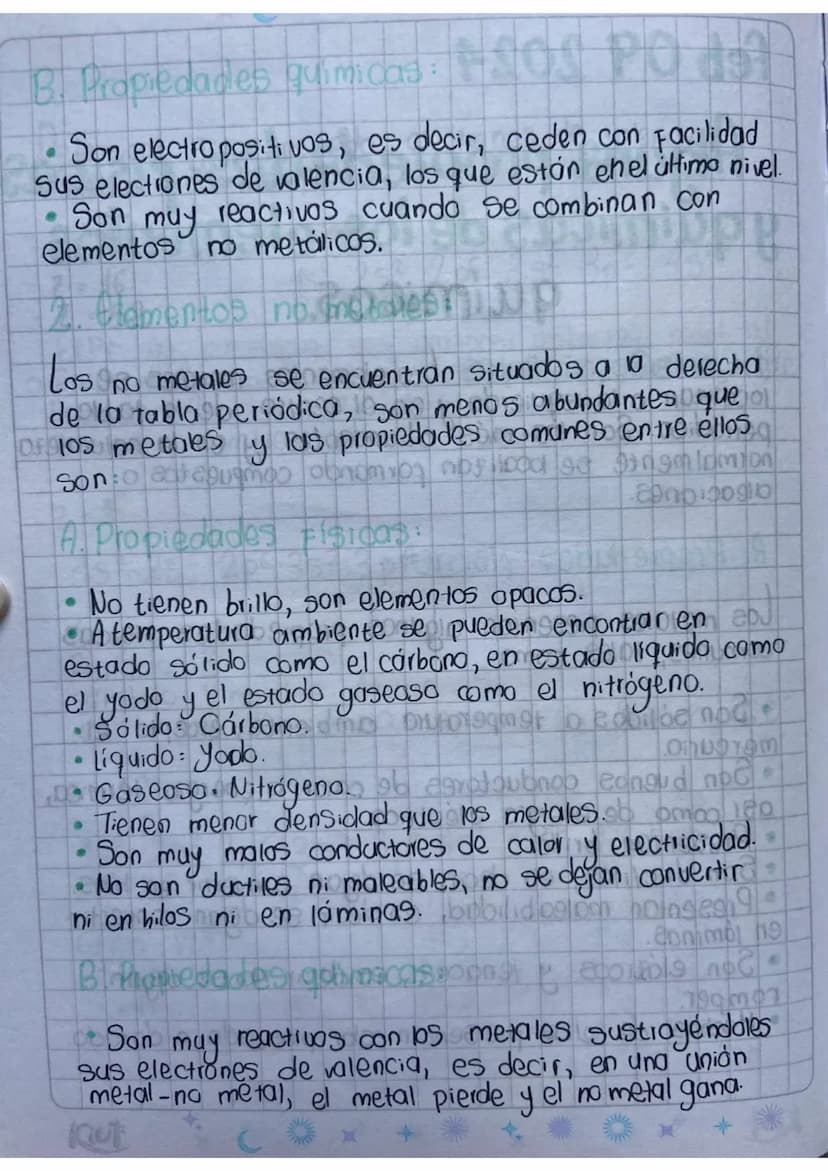 B. Propiedades químicas:
• Son electropositivos, es decir, ceden con facilidad
sus electrones de valencia, los que están en el último nivel.
• Son muy reactivos cuando se combinan con
elementos no metálicos.
2. Elementos no metales:
Los no metales se encuentran situados a la derecha
de la tabla periódica, son menos abundantes que
los metales y las propiedades comunes entre ellos
son:
A. Propiedades Físicas:
• No tienen brillo, son elementos opacos.
• A temperatura ambiente se pueden encontrar en
estado sólido como el cárbono, en estado líquido como
el yodo y el estado gaseoso como el nitrógeno.
• Sólido: Cárbono.
• Líquido: Yodo.
• Gaseoso: Nitrógeno.
• Tienen menor densidad que los metales.
• Son muy malos conductores de calor y electricidad.
• No son ductiles ni maleables, no se dejan convertir
ni en hilos ni en láminas.
B. Propiedades químicas:
• Son muy reactivos con los metales sustrayéndoles
sus electrones de valencia, es decir, en una unión
metal-no metal, el metal pierde y el no metal gana.